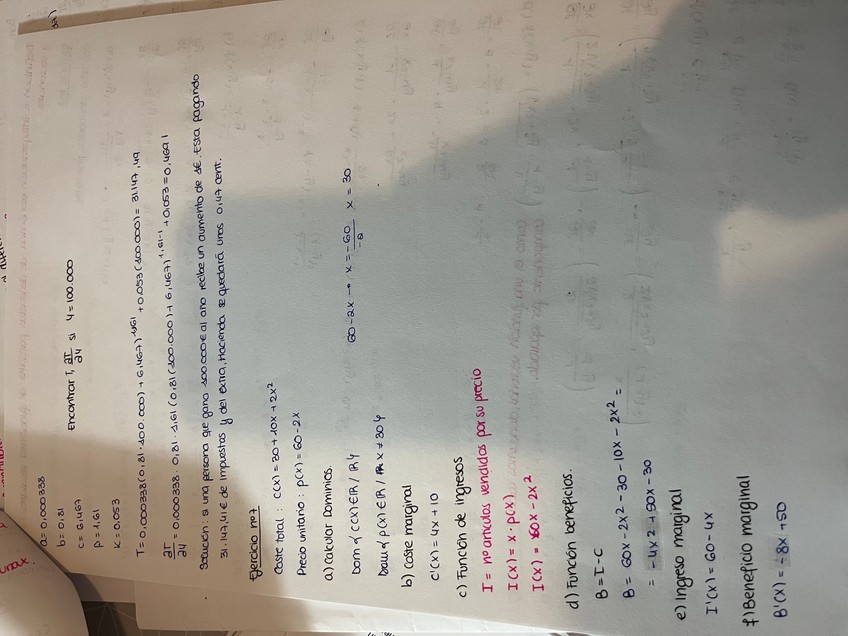 a = 0,000338
b = 0,81
c = 6,467
p = 1,61
k = 0,053
Encontrar T, ∂T/∂Y si Y = 100.000
T = 0,000338 (0,81 · 100.000) + 6,467)^1,61 + 0,053 (100.000) = 31147,49
∂T/∂Y = 0,000338 · 0,81 · 1,61 (0,81 (100.000) + 6,467)^1,61-1 + 0,053 = 0,4691
Solución: si una persona que gana 100.000€ al año recibe un aumento de 1€. Esta pagando
31.147,41€ de impuestos y del extra, Hacienda se quedará unos 0,47 cent.
Ejercicio nº7
Coste total: C(x) = 30 + 10x + 2x²
Precio unitario: p(x) = 60 - 2x
a) Calcular Dominios.
Dom { C(x) ∈ R / R }
60 - 2x → x = -60/-2 x = 30
Dom { p(x) ∈ R / x ≠ 30 }
b) Coste marginal
C'(x) = 4x + 10
c) Función de ingresos
I = nº artículos vendidos por su precio
I(x) = x · p(x)
I(x) = 60x - 2x²
d) Función beneficios.
B = I - C
B = 60x - 2x² - 30 - 10x - 2x² =
= -4x² + 50x - 30
e) Ingreso marginal
I'(x) = 60 - 4x
f) Beneficio marginal
B'(x) = -8x + 50